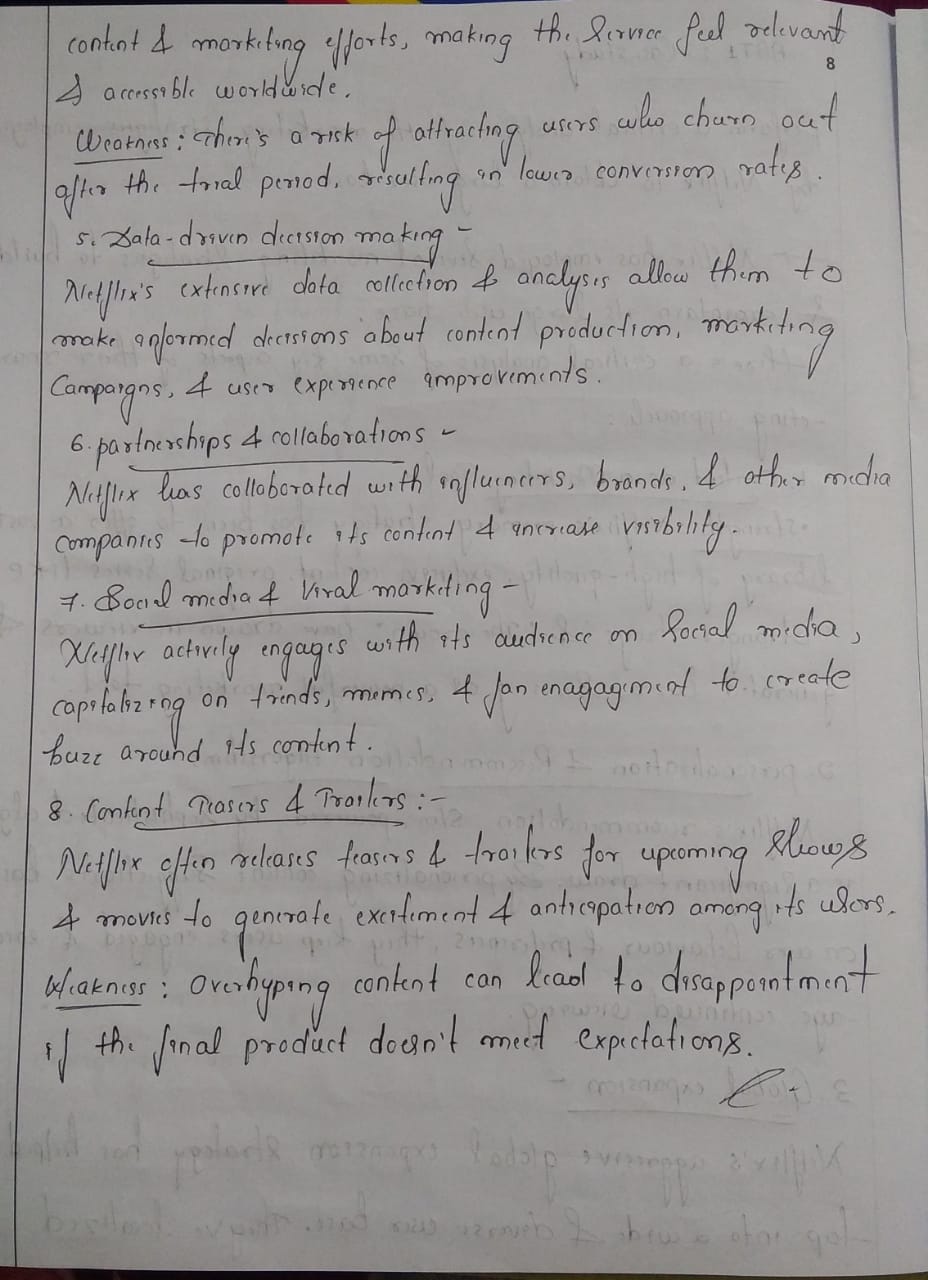 content & marketing efforts, making the Service feel relevant
8
& accessible worldwide.
Weakness : There's a risk of attracting users who churn out
after the trial period, resulting in lower conversion rates.
5. Data-driven decision making -
Netflix's extensive data collection & analysis allow them to
make informed decisions about content production, marketing
Campaigns, & user experience improvements.
6. partnerships & collaborations -
Netflix has collaborated with influencers, brands, & other media
companies to promote its content & increase visibility.
7. Social media & Viral marketing -
Netflix actively engages with its audience on Social media,
capitalizing on trends, memes, & fan enagagement to create
buzz around its content.
8. Content Teasers & Trailers :-
Netflix often releases teasers & trailers for upcoming Shows
& movies to generate excitement & anticipation among its users.
Weakness : Overhyping content can lead to disappointment
if the final product doesn't meet expectations.
3. Global expansion -
Netflix's aggressive global expansion strategy has helped